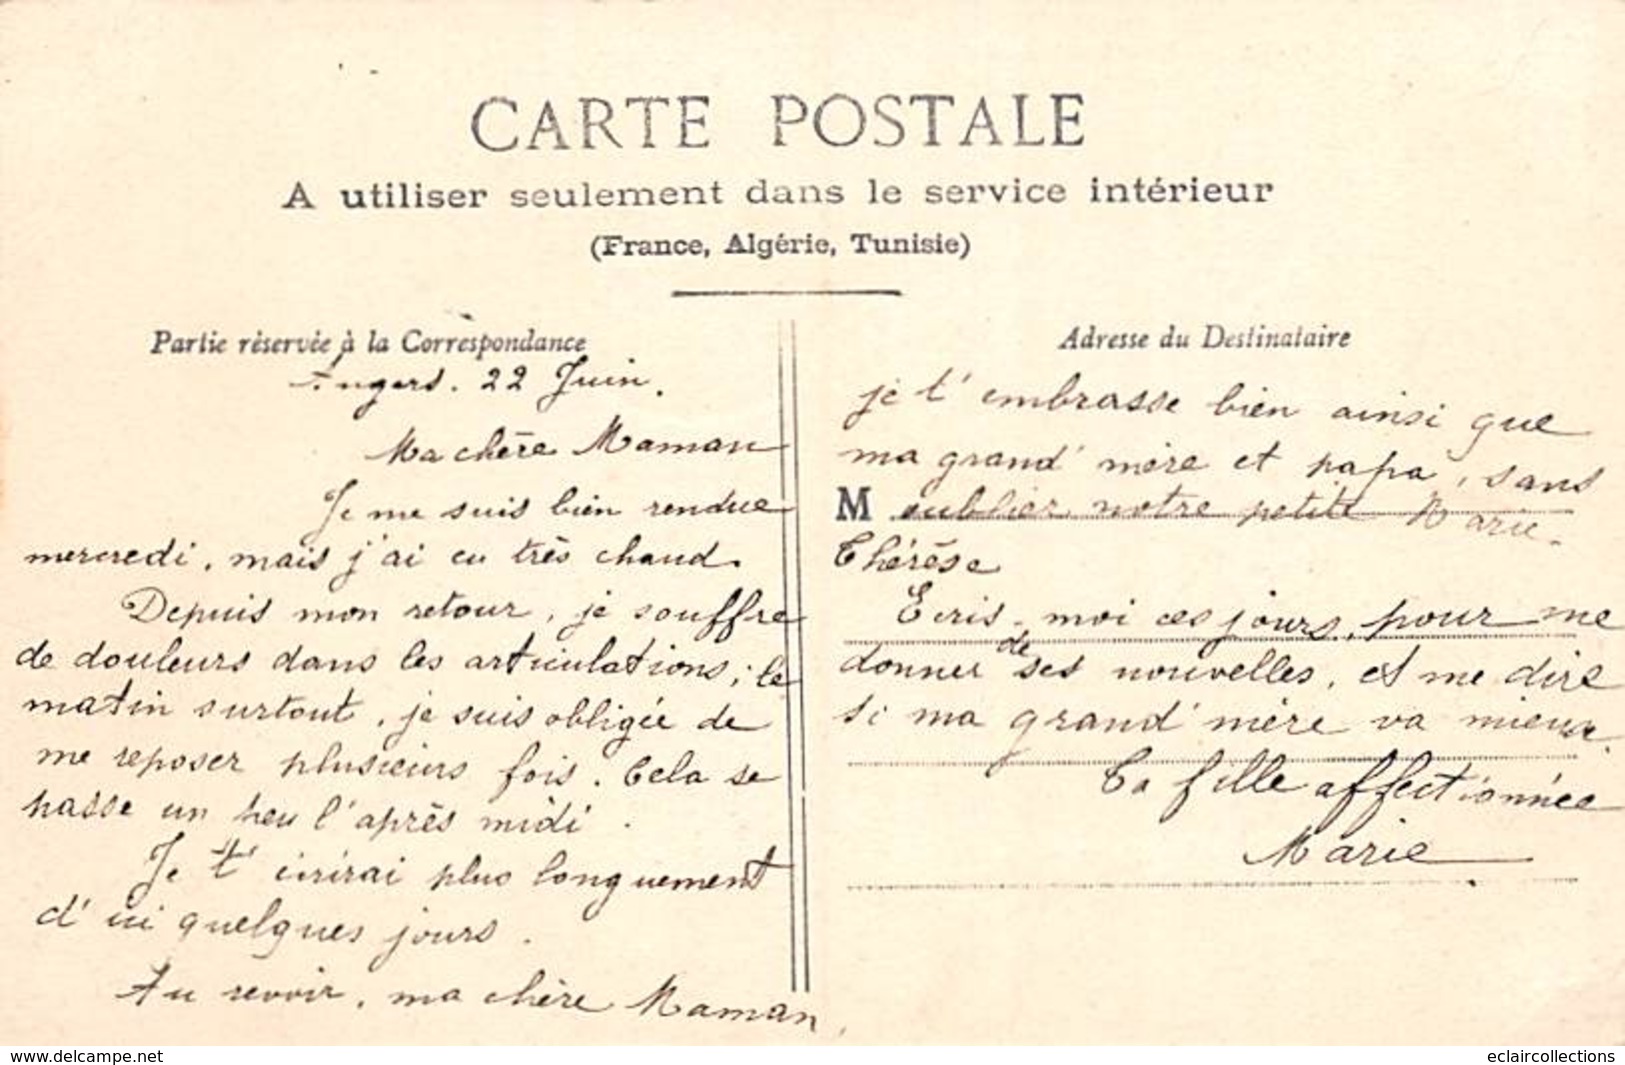 CARTE POSTALE
A utiliser seulement dans le service intérieur
(France, Algérie, Tunisie)
Partie réservée à la Correspondance
Angers. 22 Juin.
Ma chère Maman
Je me suis bien rendue
mercredi, mais j'ai eu très chaud.
Depuis mon retour, je souffre
de douleurs dans les articulations; le
matin surtout, je suis obligée de
me reposer plusieurs fois. Cela se
passe un peu l'après midi.
Je t'écrirai plus longuement
d'ici quelques jours.
Au revoir, ma chère Maman,
Adresse du Destinataire
je t'embrasse bien ainsi que
ma grand'mère et papa, sans
M oublier notre petite Marie-
Thérèse
Ecris-moi ces jours, pour me
donner de ses nouvelles, et me dire
si ma grand'mère va mieux.
Ta fille affectionnée
Marie
www.delcampe.net
eclaircollections